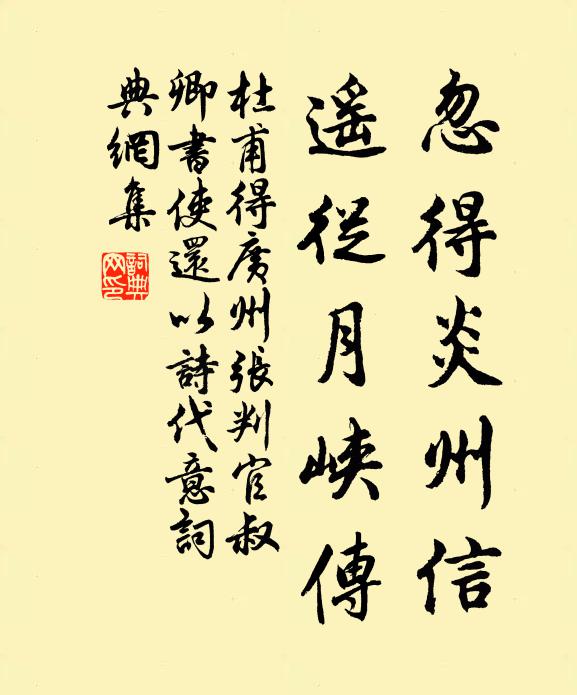 忽得炎州信
遥從月峽傳
杜甫得廣州張判官叔
卿書使還以詩代意詞
典網集
詞典
网印